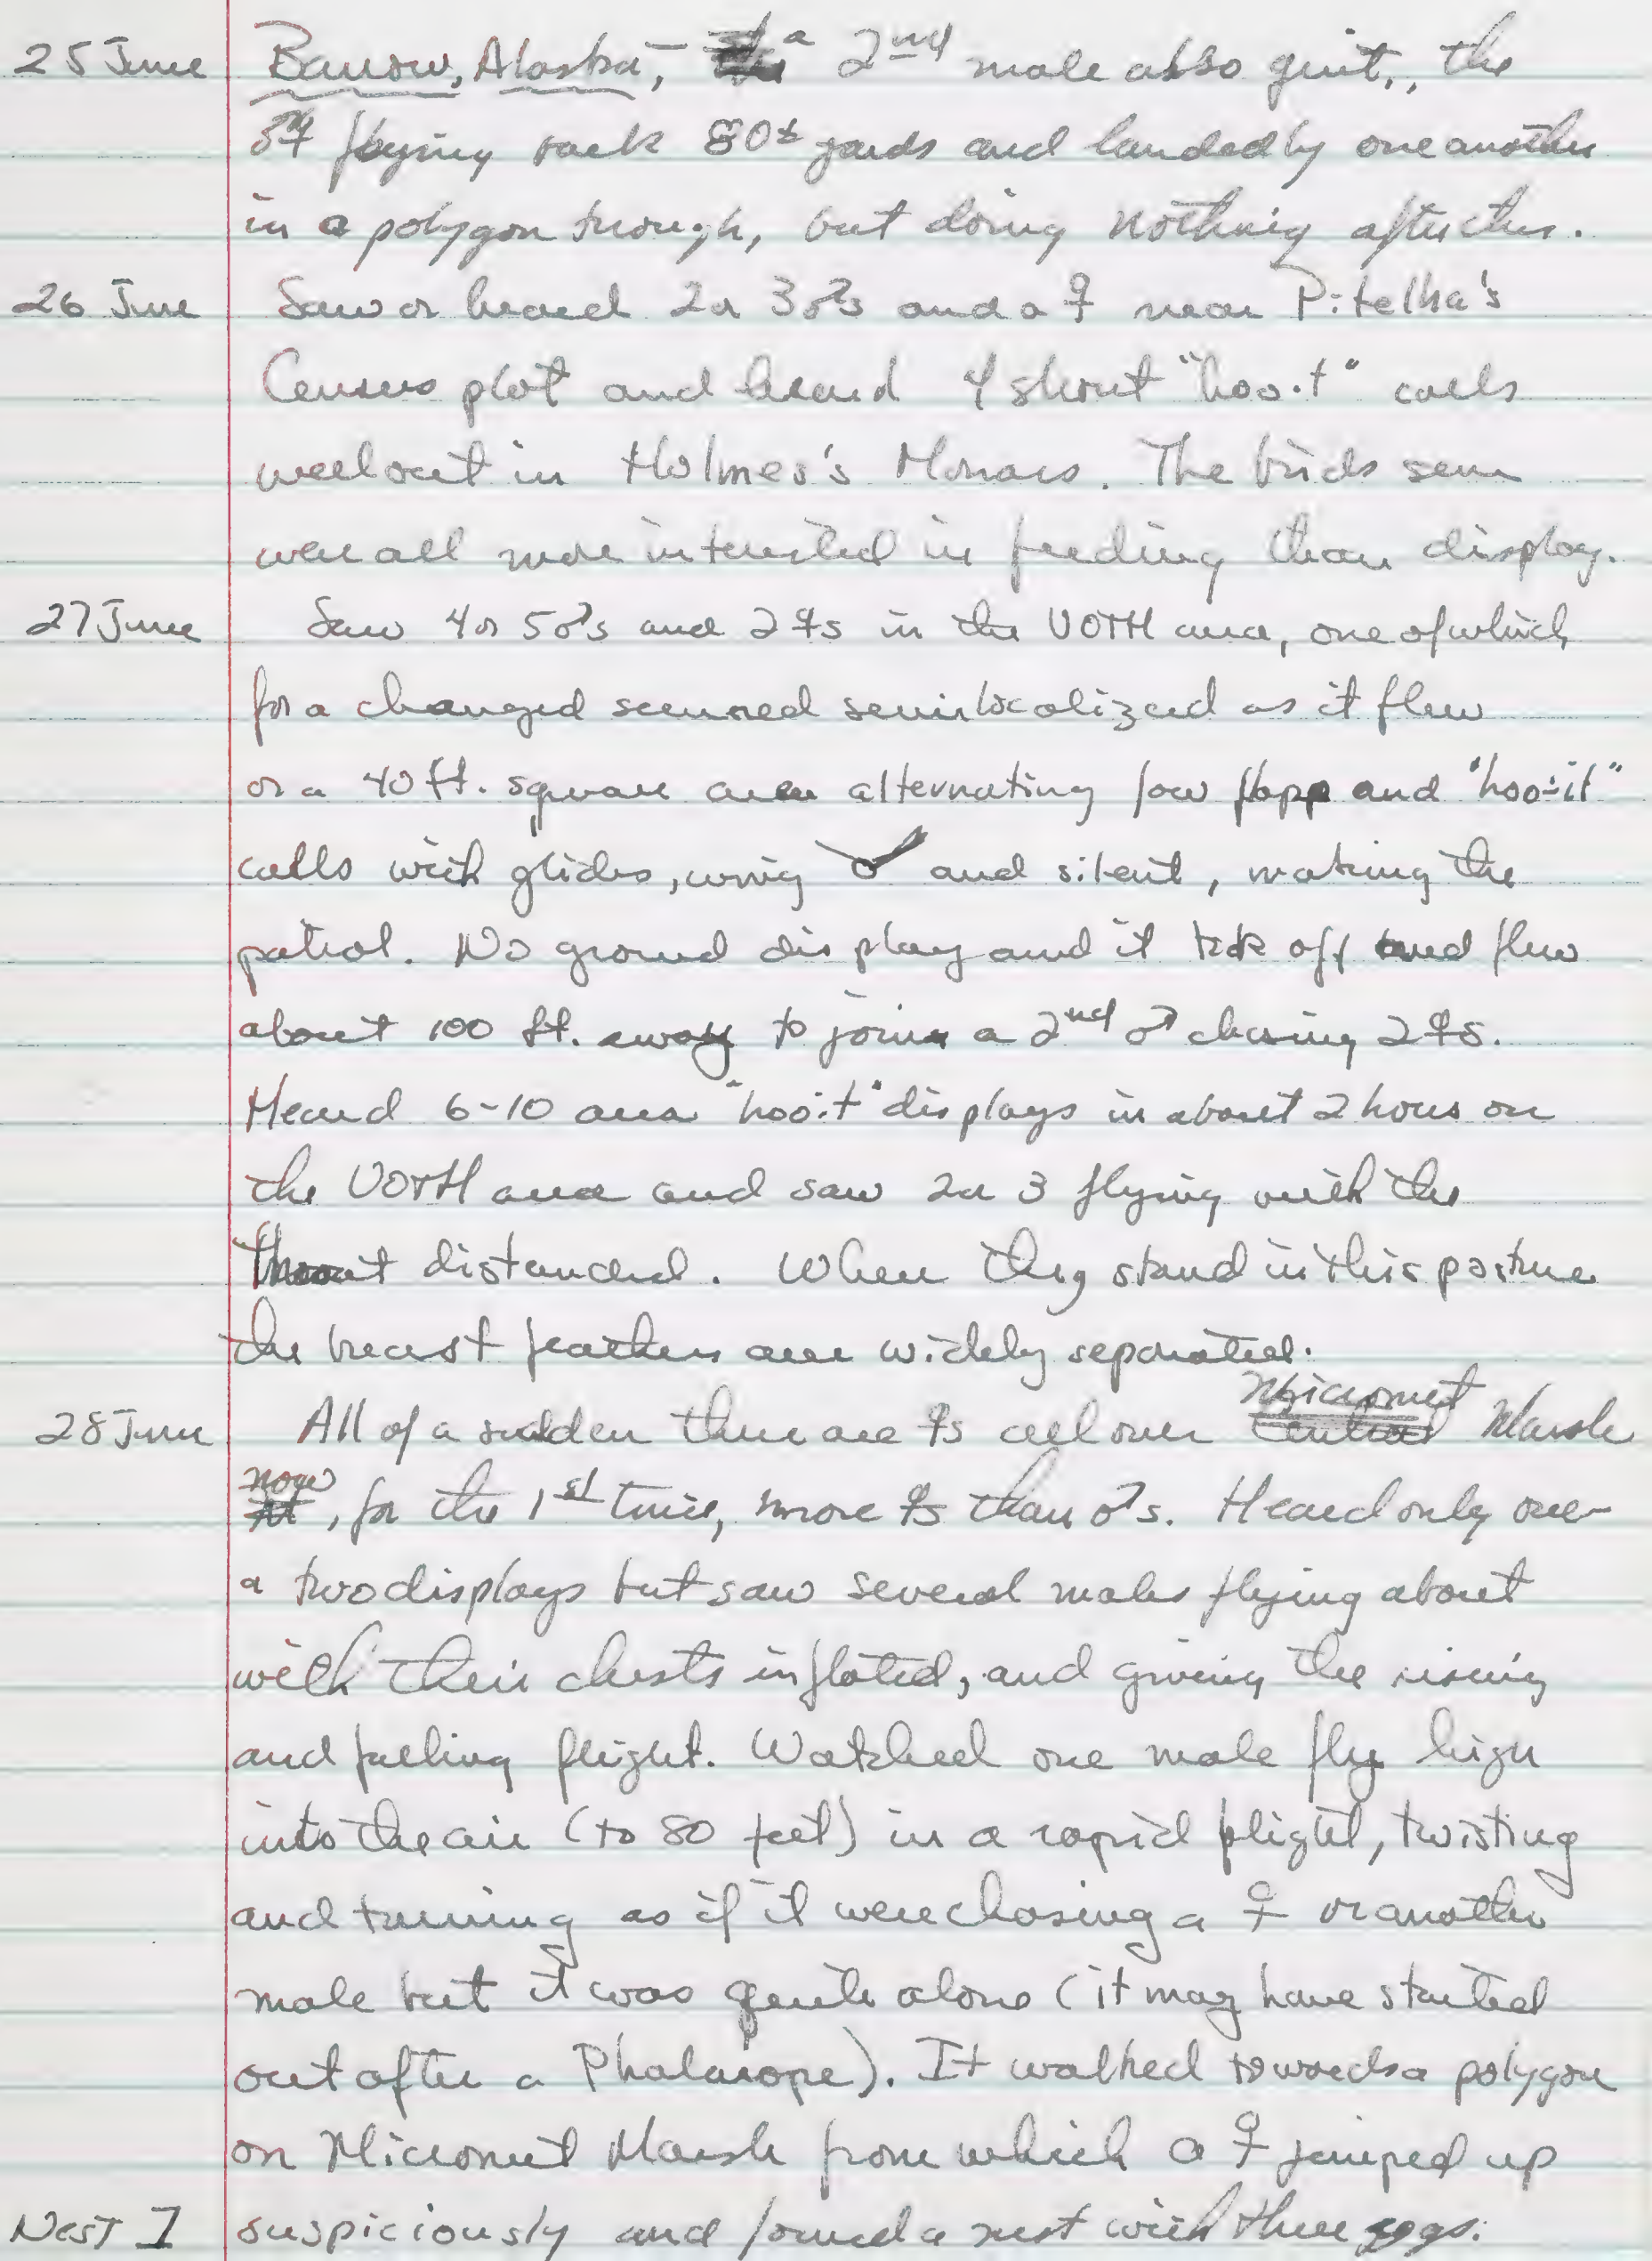 25 June Barrow, Alaska, – a 2nd male also quit, the
♂♀ flying back 80± yards and landed by one another
in a polygon trough, but doing nothing after this.
26 June Saw or heard 2 or 3 ♂s and a ♀ near Pitelka's
Census plot and heard 4 short "hoo-it" calls
well out in Holmes's Monacs. The birds seen
were all more interested in feeding than display.
27 June Saw 4 or 5 ♂s and 2 ♀s in the VOTH area, one of which
for a changed seemed semilocalized as it flew
or a 40 ft. square area alternating low flapp and "hoo-it"
calls with glides, wing and silent, making the
patrol. No ground display and it took off and flew
about 100 ft. away to join a 2nd ♂ chasing 2 ♀s.
Heard 6-10 area "hoo-it" displays in about 2 hours on
the VOTH area and saw 2 or 3 flying with the
throat distended. When they stand in this posture
the breast feathers are widely separated.
28 June All of a sudden there are ♀s all over Micromet Marsh
now, for the 1st time, more ♀s than ♂s. Heard only one
or two displays but saw several males flying about
with their chests inflated, and giving the rising
and falling flight. Watched one male fly high
into the air (to 80 feet) in a rapid flight, twisting
and turning as if it were chasing a ♀ or another
male but it was quite alone (it may have started
out after a Phalarope). It walked towards a polygon
on Micromet Marsh from which a ♀ jumped up
Nest 1 suspiciously and found a nest with three eggs.